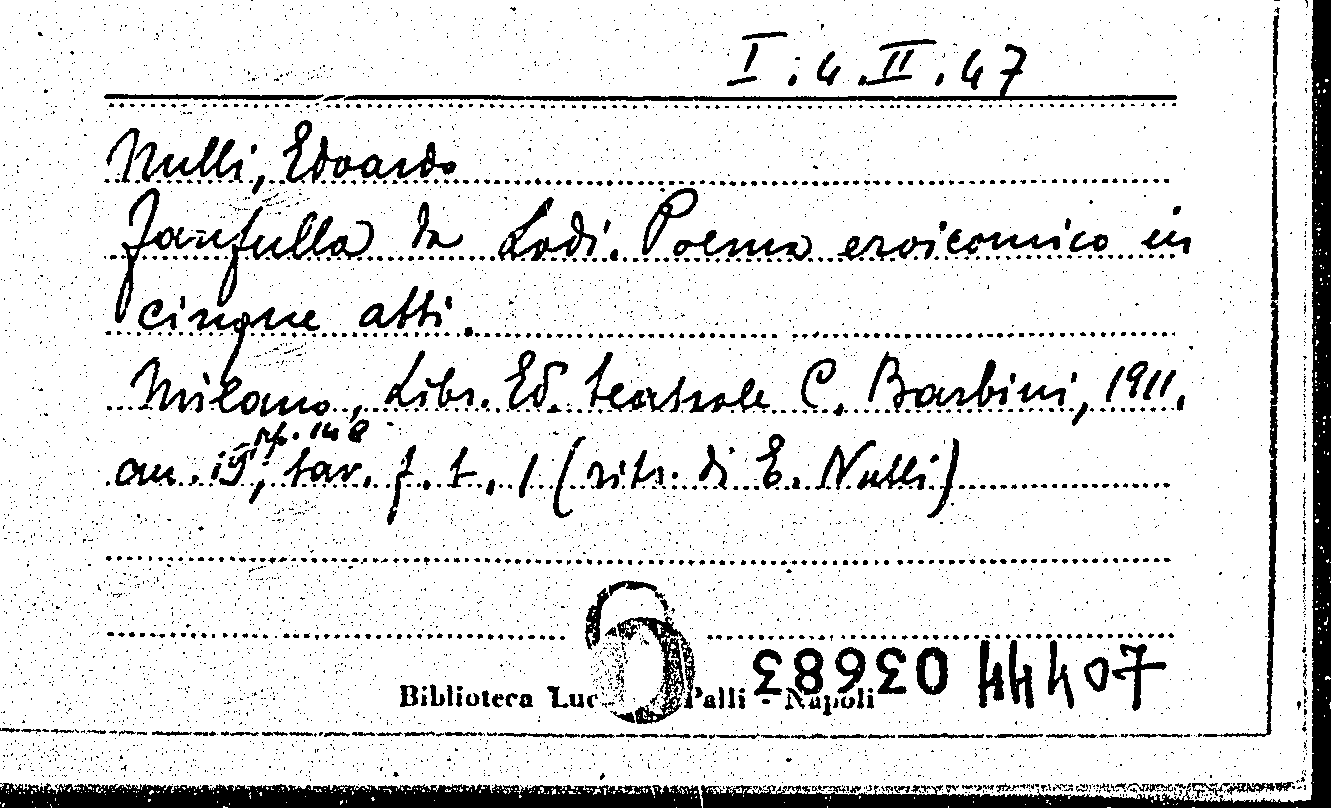 I.4.II.47
Nulli, Edoardo
Fanfulla da Lodi. Poema eroicomico in
cinque atti.
Milano, Libr. Ed. teatrale C. Barbini, 1911,
pp. 148
au. 19, tav. f. t. 1 (ritr. di E. Nulli)
Biblioteca Luc Palli - Napoli
44407